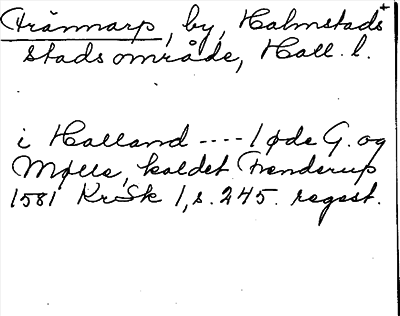 Frännarp, by, Halmstads +
stadsområde, Hall. l.
i Halland ---- 1 øde G. og
Mølle, kaldet Frenderup
1581 KrSk 1, s. 245. regest.